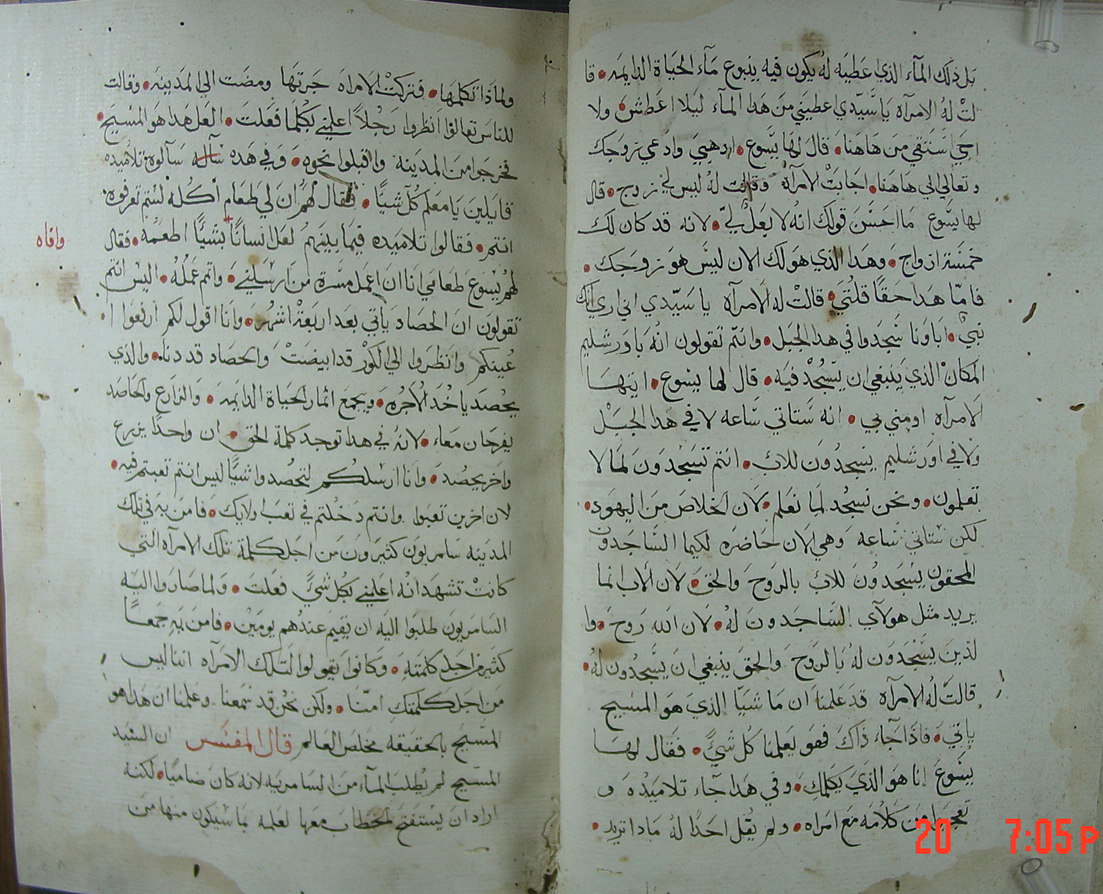 بل ذلك المآء الذي اعطيه له يكون فيه ينبوع مآء الحياة الدايمه • قا
لت له الامرآه يا سيدي اعطيني من هذا المآء ليلا اعطش • ولا
اجي استقي من هاهنا • قال لها يسوع • اذهبي وادعي زوجك
وتعالي الي هاهنا • اجابت الامرآه وقالت له ليس لي زوج • قال
لها يسوع ما احسن قولك انه لا بعل لي • لانه قد كان لك
خمسة ازواج • وهذا الذي هو لك الان ليس هو زوجك •
فاما هذا حقا قلتي • قالت له الامرآه يا سيدي اني اري انك
نبي • اباونا سجدوا في هذا الجبل • وانتم تقولون انه باورشليم
المكان الذي ينبغي ان يسجد فيه • قال لها يسوع • ايتها
الامرآه اومني بي • انه ستاتي ساعه لا في هذا الجبل
ولا في اورشليم يسجدون للاب • انتم تسجدون لما لا
تعلمون • ونحن نسجد لما نعلم • لان الخلاص من اليهود •
لكن ستاتي ساعه وهي الان حاضره لكيما الساجدون
المحقون يسجدون للاب بالروح والحق • لان الاب انما
يريد مثل هولآي الساجدون له • لان الله روح • وا
لذين يسجدون له بالروح والحق ينبغي ان يسجدون له •
قالت له الامرآه قد علمنا ان ماشيا الذي هو المسيح
ياتي • فاذا جآء ذاك فهو يعلمنا كل شي • فقال لها
يسوع انا هو الذي يكلمك • وفي هذا جآء تلاميذه و
تعجبوا من كلامه مع امراه • ولم يقل احدا له ماذا تريد •
ولماذا تكلمها • فتركت الامراه جرتها ومضت الى المدينه • وقالت
للناس تعالوا انظروا رجلا اعلمني بكلما فعلت • العل هذا هو المسيح •
فخرجوا من المدينه واقبلوا نحوه • وفي هذه سآله سآلوه تلاميذه
قايلين يا معلم كل شيا • فقال لهم ان لي طعام آكله لستم تعرفوه
انتم • فقالوا تلاميذه فيما بينهم لعل انسانا بشيا اطعمه • فقال
وافاه
لهم يسوع طعامي انا ان اعمل مسرة من ارسلني • واتم عمله • اليس انتم
تقولون ان الحصاد ياتي بعد اربعة اشهر • وانا اقول لكم ارفعوا ا
عينكم وانظروا الي الكور قد ابيضت والحصاد قد دنا • والذي
يحصد ياخذ الاجره • ويجمع اثمار لحياة الدايمه • والزارع والحاصد
ليفرحان معا • لانه في هذا توجد كلمة الحق • ان واحدا يزرع
واخر يحصد • وانا ارسلكم لتحصدوا شيا ليس انتم تعبتم فيه •
لان اخرين تعبوا وانتم دخلتم في تعب اولايك • فامن به في تلك
المدينه سامريون كثيرون من اجل كلمة تلك الامرآه التي
كانت تشهد انه اعلمني بكل شي فعلت • ولما صاروا اليه
السامريون طلبوا اليه ان يقيم عندهم يومين • فامن به جمعا
كثير من اجل كلمته • وكانوا يقولوا لتلك الامرآه اننا ليس
من اجل كلمتك امنا • ولكن نحن قد سمعنا وعلمنا ان هذا هو
المسيح بالحقيقه مخلص العالم قال المفسر ان السيد
المسيح لم يطلب المآء من السامريه لانه كان ضاميا • لكنه
اراد ان يستفتح الخطاب معها لعلمه بما سيكون منها من
20 7:05 P